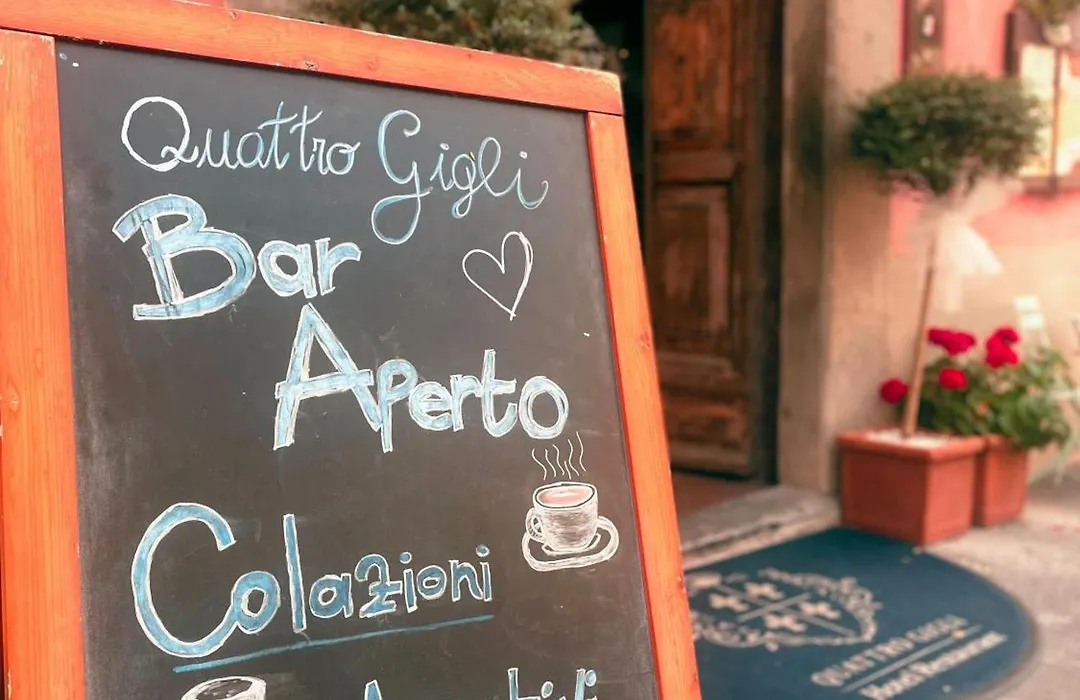 Quattro Gigli
Bar
Aperto
Colazioni
QUATTRO GIGLI
Hotel Restaurant